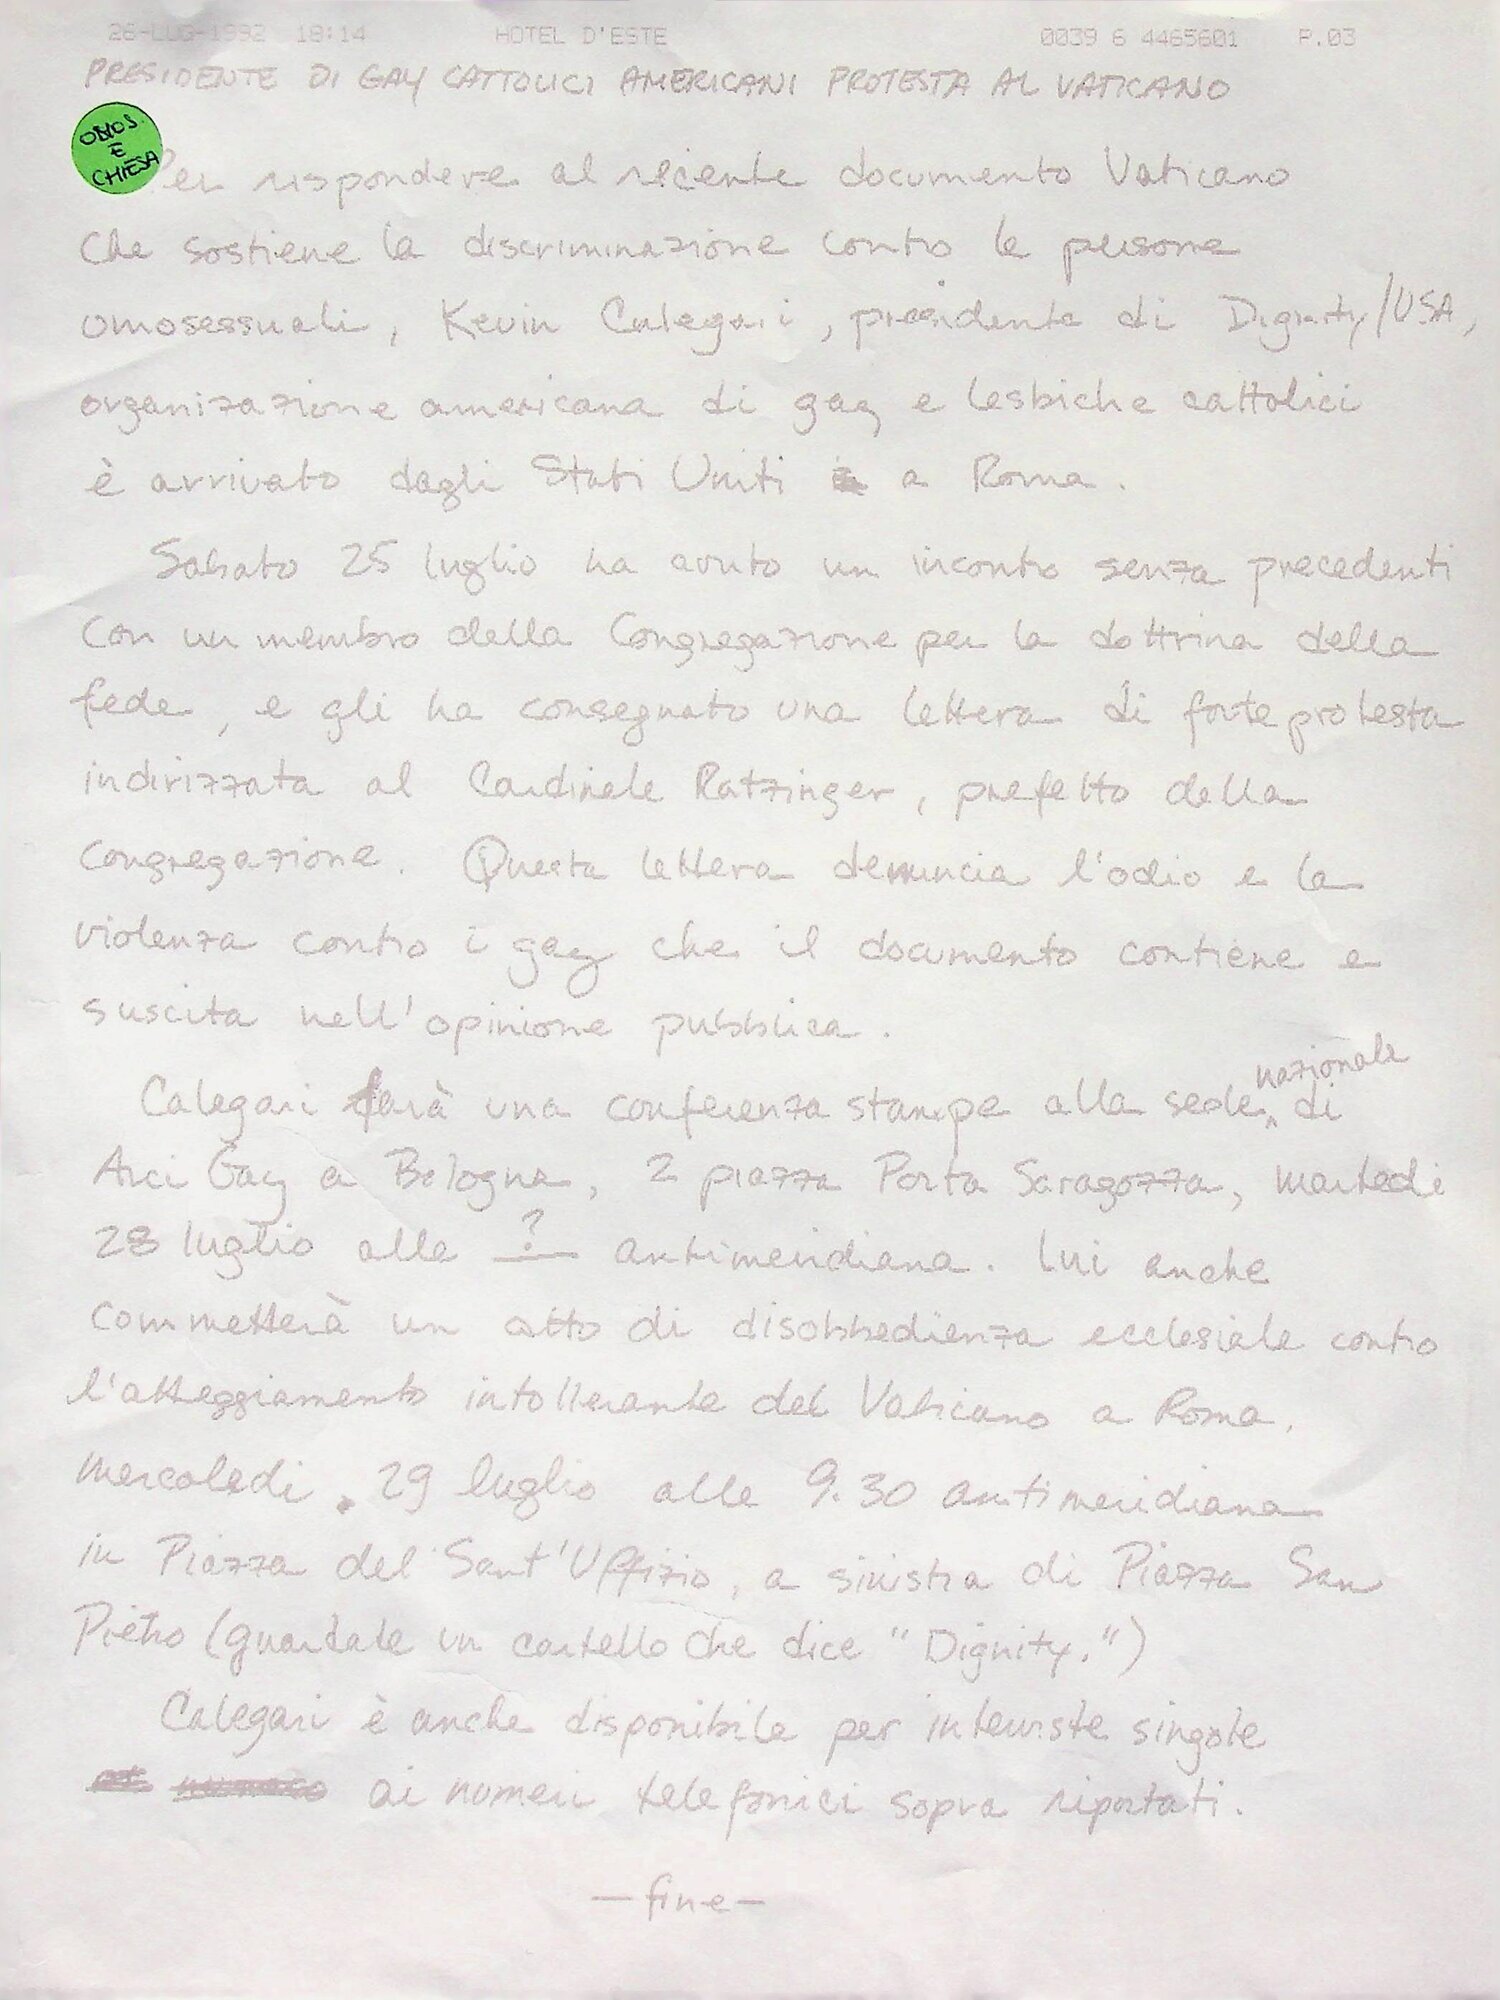 26-LUG-1992 18:14 HOTEL D'ESTE 0039 6 4465601 P.03
PRESIDENTE DI GAY CATTOLICI AMERICANI PROTESTA AL VATICANO
OMOS. E CHIESA
Per rispondere al recente documento Vaticano
che sostiene la discriminazione contro le persone
omosessuali, Kevin Calegari, presidente di Dignity/USA,
organizazione americana di gay e lesbiche cattolici
è arrivato dagli Stati Uniti a Roma.
Sabato 25 luglio ha avuto un incontro senza precedenti
con un membro della Congregazione per la dottrina della
fede, e gli ha consegnato una lettera di forte protesta
indirizzata al Cardinale Ratzinger, prefetto della
Congregazione. Questa lettera denuncia l'odio e la
violenza contro i gay che il documento contiene e
suscita nell'opinione pubblica.
Calegari farà una conferenza stampe alla sede nazionale di
Arci Gay a Bologna, 2 piazza Porta Saragozza, martedi
28 luglio alle ? antimeridiana. Lui anche
commetterà un atto di disobbedienza ecclesiale contro
l'atteggiamento intollerante del Vaticano a Roma,
mercoledi 29 luglio alle 9.30 antimeridiana
in Piazza del Sant'Uffizio, a sinistra di Piazza San
Pietro (guardate un cartello che dice "Dignity.")
Calegari è anche disponibile per interviste singole
ai numeri telefonici sopra riportati.
— fine —